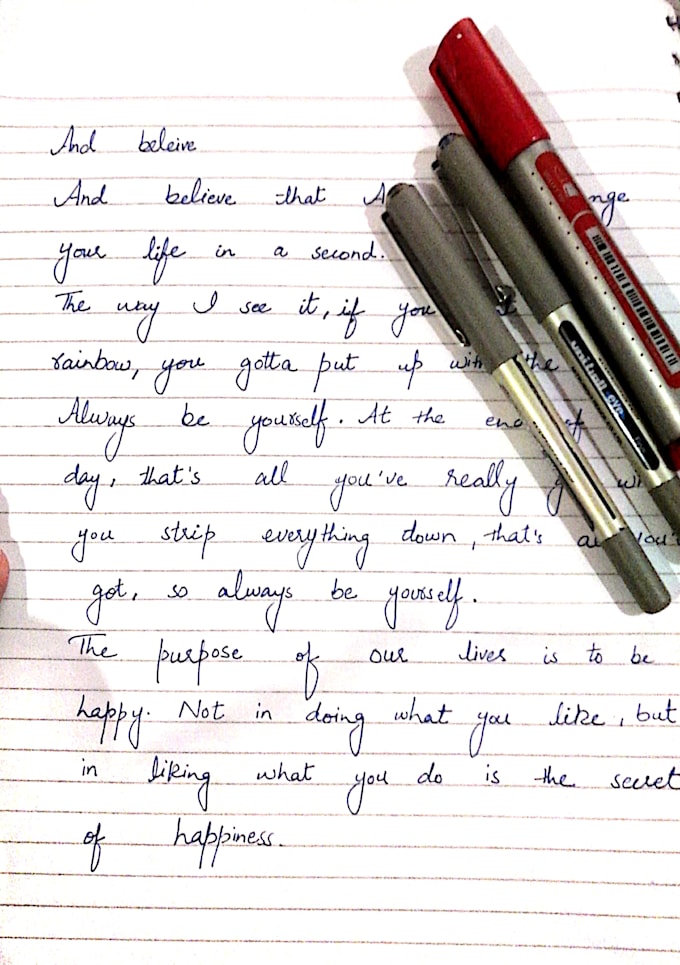 And beleive
And believe that A nge
your life in a second.
The way I see it, if you
rainbow, you gotta put up with the
Always be yourself. At the end of
day, that's all you've really g wh
you strip everything down, that's al you'v
got, so always be yourself.
The purpose of our lives is to be
happy. Not in doing what you like, but
in liking what you do is the secret
of happiness.
uni-ball eye